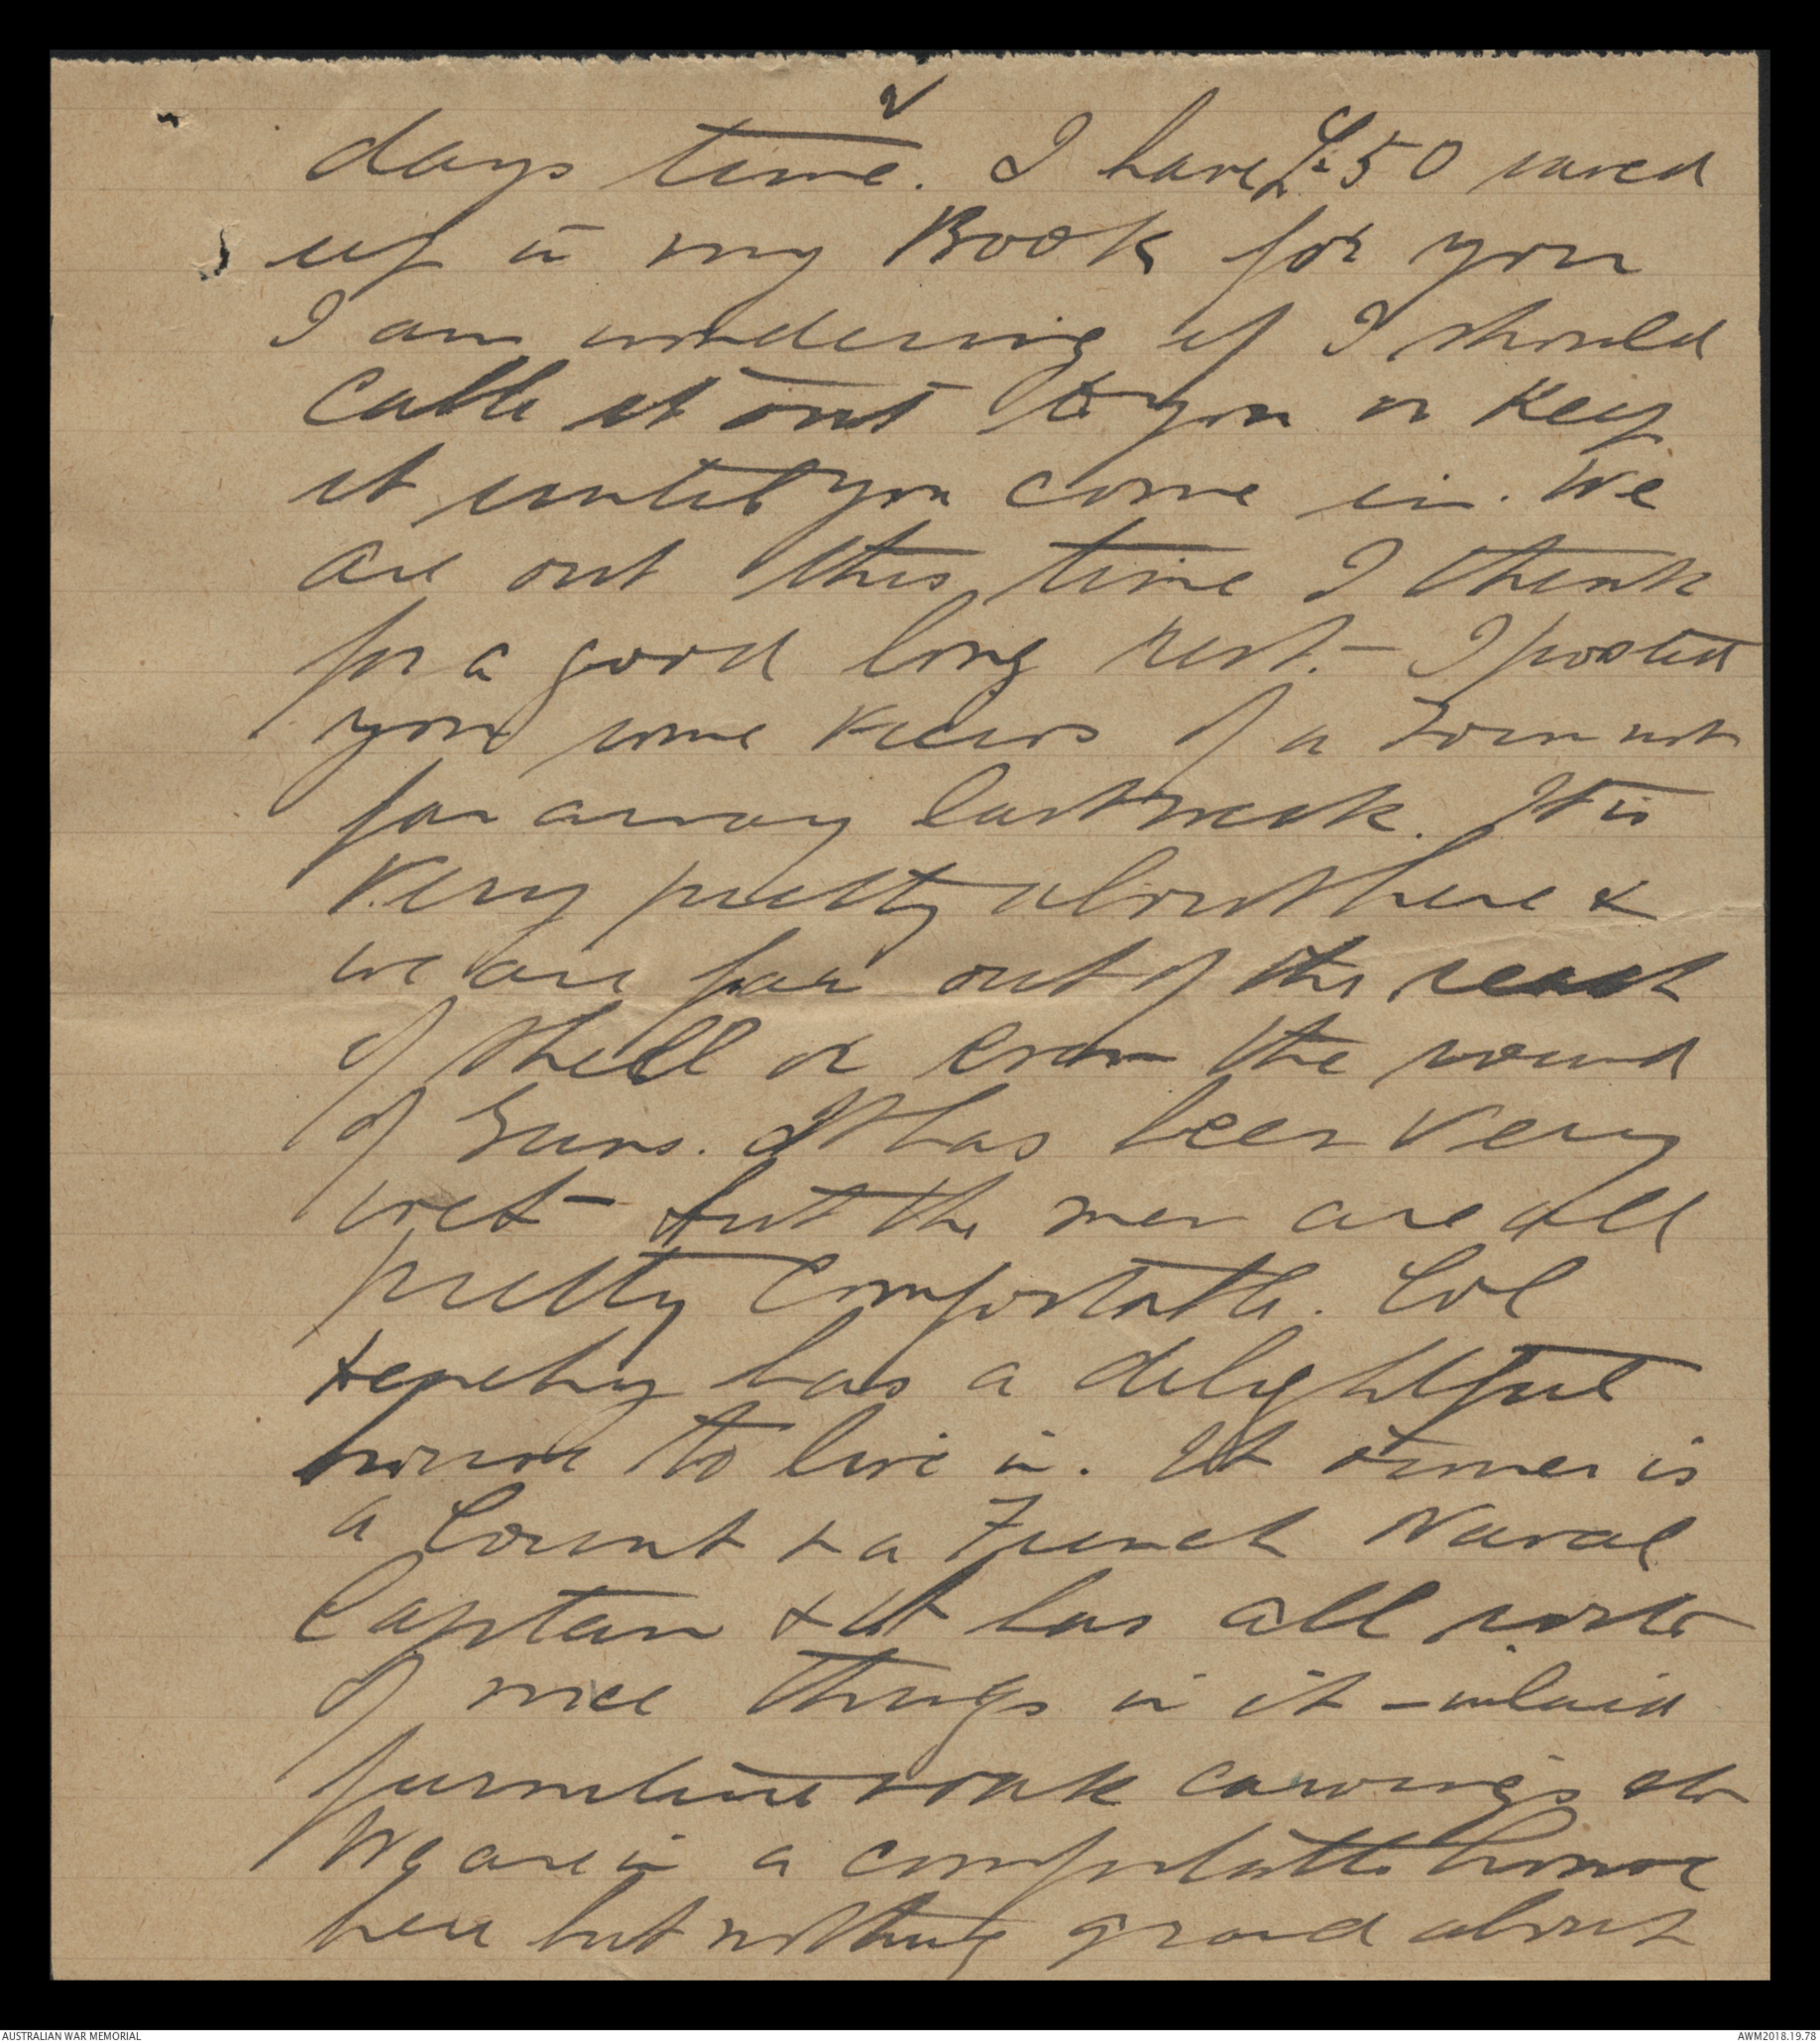 2
days time. I have £50 saved
up in my Book for you
I am wondering if I should
Cable it out to you or Keep
it until you come in. We
are out this time I think
for a good long rest. - I posted
you some views of a Town not
far away last week. It is
Very pretty about here &
we are far out of the reach
of shell or even the sound
of Guns. It has been Very
wet - but the men are all
pretty Comfortable. Col
has a delightful
house to live in. It owner is
a Count & a French Naval
Captain & it has all sorts
of nice things in it - inlaid
furniture & oak carvings etc
We are in a comfortable house
here but nothing grand about
AUSTRALIAN WAR MEMORIAL
AWM2018.19.78